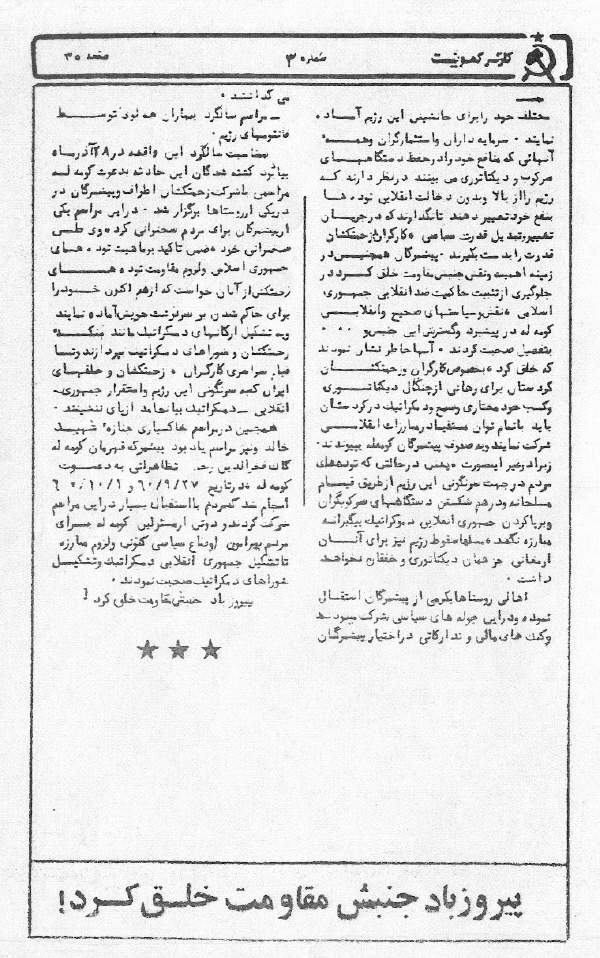 کارگر کمونیست
شماره ۳
صفحه ۳۰
مختلف خود را برای جانشینی این رژیم آماده
نمایند . سرمایه داران واستثمارگران وهمه
آنهائی که منافع خود رادرحفظ دستگاههای
سرکوب و دیکتاتوری می بینند درنظر دارند که
رژیم رااز بالا وبدون دخالت انقلابی توده ها
بنفع خودتغییردهند تانگذارند که درجریان
تغییروتبدیل قدرت سیاسی ، کارگران وزحمتکشان
قدرت رابدست بگیرند . پیشمرگان همچنین در
زمینه اهمیت ونقش جنبش مقاومت خلق کرد در
جلوگیری از تثبیت حاکمیت ضدانقلابی جمهوری
اسلامی ، نقش وسیاستهای صحیح وانقلابی
کومه له در پیشبرد وگسترش این جنبش و ...
بتفصیل صحبت کردند . آنها خاطر نشان نمودند
که خلق کرد ، بخصوص کارگران وزحمتکشان
کردستان برای رهائی ازچنگال دیکتاتوری
وکسب خود مختاری وسیع ودمکراتیک درکردستان
باید باتمام توان مستقیما درمبارزات انقلابی
شرکت نمایند وبه صفوف پیشمرگان کومه له بپیوندند
زیرا درغیر اینصورت ، یعنی درحالتی که توده های
مردم درجهت سرنگونی این رژیم ازطریق قیام
مسلحانه ودرهم شکستن دستگاههای سرکوبگران
وبرپاکردن جمهوری انقلابی دموکراتیک پیگیرانه
مبارزه نکنند ، مسلما سقوط رژیم نیز برای آنان
ارمغانی جز همان دیکتاتوری وخفقان نخواهد
داشت .
اهالی روستاها بگرمی از پیشمرگان استقبال
نموده ودراین جوله های سیاسی شرکت مینمودند
وکمک های مالی و تدارکاتی دراختیار پیشمرگان
می گذاشتند .
ـ مراسم سالگرد بمباران توسط
فانتومهای رژیم .
بمناسبت سالگرد این واقعه در ۲۸ آذرماه
بیاد کشته شدگان این حادثه بدعوت کومه له
مراسمی باشرکت زحمتکشان اطراف وپیشمرگان در
دریکی ازروستاها برگزار شد . دراین مراسم یکی
ازپیشمرگان برای مردم سخنرانی کرد . وی طی
سخنرانی خود ، ضمن تاکید برماهیت
جمهوری اسلامی ولزوم مقاومت توده های
زحمتکش از آنان خواست که ازهم اکنون خود را
برای حاکم شدن بر سرنوشت خویش آماده نمایند
وبه تشکیل ارگانهای دمکراتیک مانند بنکه
زحمتکشان و شوراهای دمکراتیک بپردازند وتا
قیام سراسری کارگران ، زحمتکشان و خلقهای
ایران که سرنگونی این رژیم واستقرار جمهوری
انقلابی ـ دمکراتیک بیانجامد ازپای ننشینند .
همچنین درمراسم خاکسپاری جنازه شهید
خالد ونیز مراسم یادبود پیشمرگه قهرمان کومه له
کاک فخرالدین تظاهراتی به دعوت
کومه له درتاریخ ۶۰/۹/۲۷ و ۶۰/۱۰/۱
انجام شد که مردم بااستقبال بسیار دراین مراسم
شرکت کردند و دوتن ازمسئولین کومه له برای
مردم پیرامون اوضاع سیاسی کنونی ولزوم مبارزه
تا تشکیل جمهوری انقلابی دمکراتیک وتشکیل
شوراهای دمکراتیک صحبت نمودند .
پیروز باد جنبش مقاومت خلق کرد !
پیروز باد جنبش مقاومت خلق کرد!